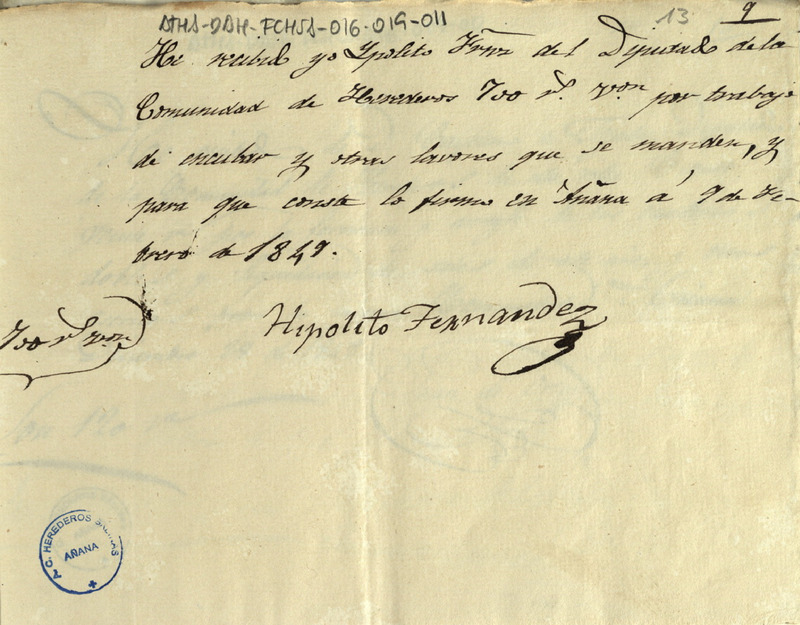 ATHA-DAH-FCHSA-016-019-011
13
9
He recibido yo Ypolito Frnz del Diputado de la
Comunidad de Herederos 700 rs. von por trabajo
de encubar y otras lavores que se manden, y
para que conste lo firmo en Añana á 9 de Fe-
brero de 1849.
700 rs von
Hipolito Fernandez
A.C. HEREDEROS SALINAS
AÑANA